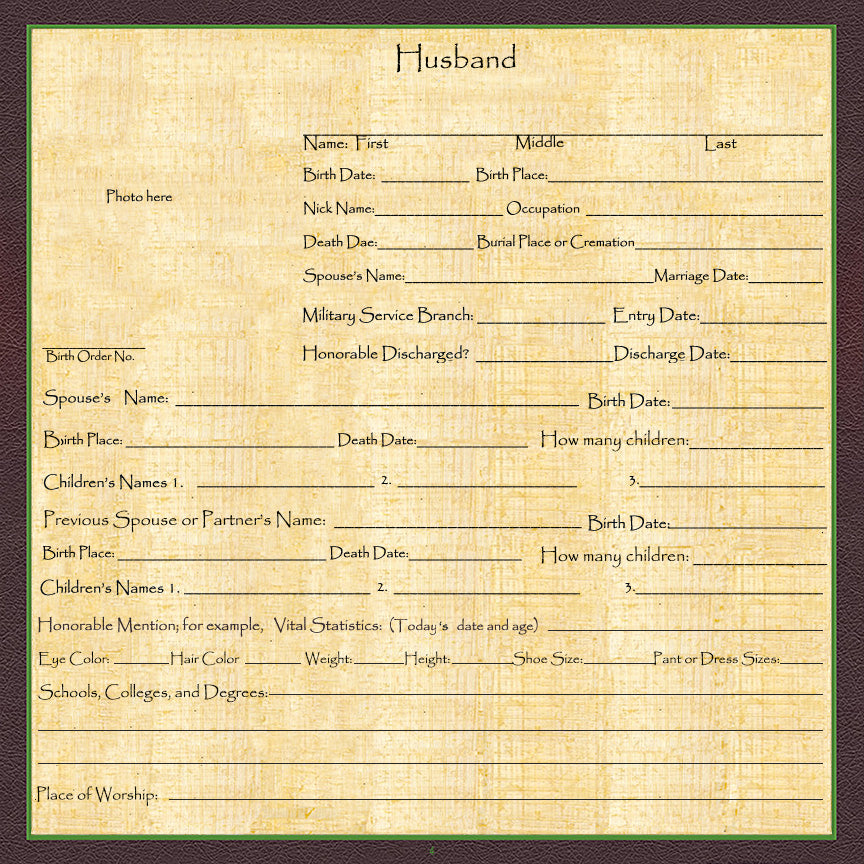 Husband
Name: First Middle Last
Birth Date: Birth Place:
Photo here
Nick Name: Occupation
Death Dae: Burial Place or Cremation
Spouse's Name: Marriage Date:
Military Service Branch: Entry Date:
Birth Order No.
Honorable Discharged? Discharge Date:
Spouse's Name: Birth Date:
Birth Place: Death Date: How many children:
Children's Names 1. 2. 3.
Previous Spouse or Partner's Name: Birth Date:
Birth Place: Death Date: How many children:
Children's Names 1. 2. 3.
Honorable Mention; for example, Vital Statistics: (Today 's date and age)
Eye Color: Hair Color Weight: Height: Shoe Size: Pant or Dress Sizes:
Schools, Colleges, and Degrees:
Place of Worship: